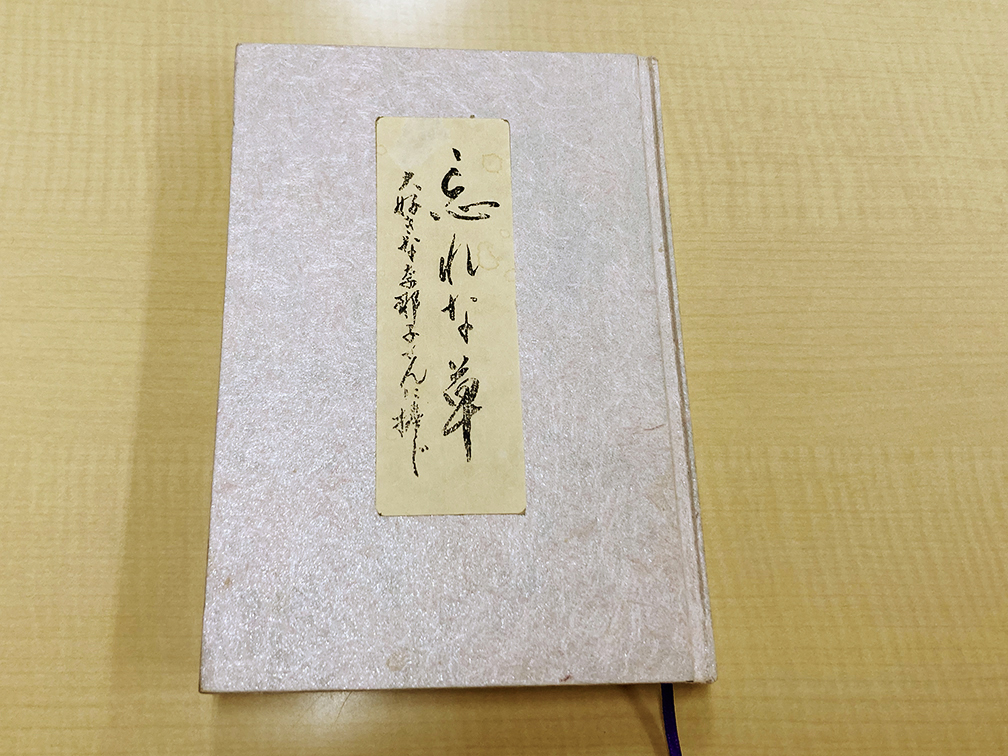 忘れな草
大好きな奈耶子さんに捧ぐ